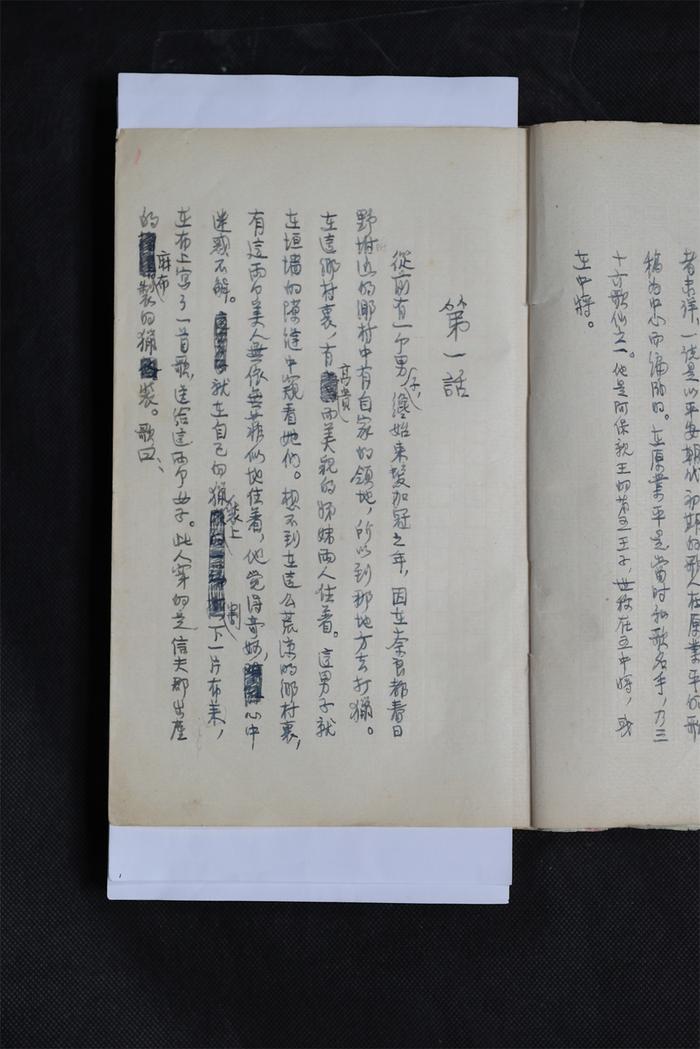 者未详，一说是以平安朝代初期的歌人在原業平的歌
稿为中心而编的。在原業平是當时和歌名手，乃三
十六歌仙之一。他是阿保親王的第五王子，世称在五中将，或
在中将。
第一話
從前有一个男子，纔始束髮加冠之年，因在奈良都春日
野附近的鄉村中有自家的領地，所以到那地方去打獵。
在這鄉村裏，有高貴而美貌的姊妹兩人住着。這男子就
在垣墙的隙缝中窺看她们。想不到在這么荒凉的鄉村裏，
有這兩个美人無依無靠似地住着，他觉得奇妙，心中
迷惑不解。就在自己的獵裝上割下一片布来，
在布上寫了一首歌，送给這兩个女子。此人穿的是信夫郡出產
的麻布製的獵裝。歌曰、